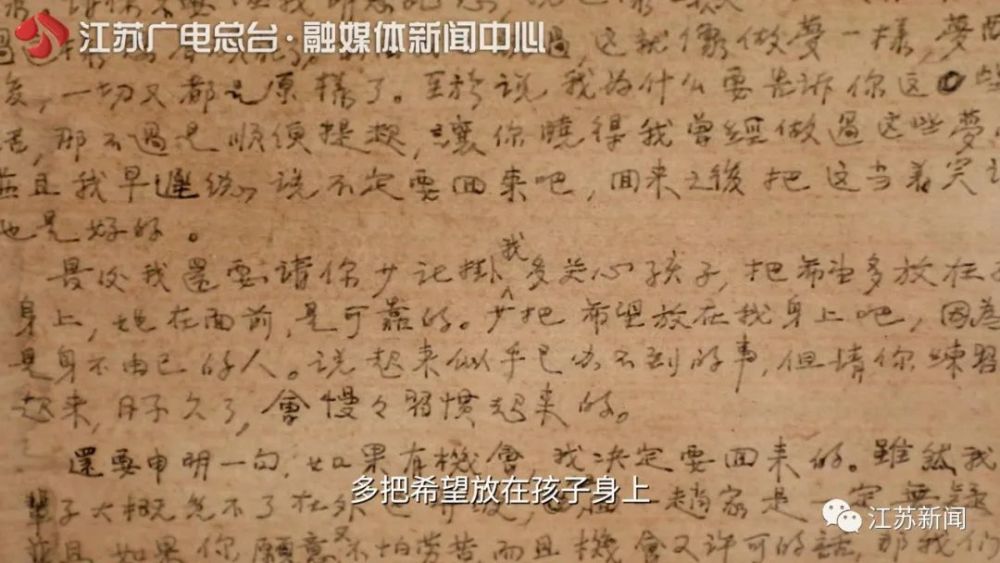 江苏广电总台·融媒体新闻中心
过,这就像做夢一樣,夢
後,一切又都是原樣了。至於说我为什么要告訴你这些
那不過是順便提起,讓你曉得我曾經做過这些夢
並且我早遲 说不定要回来吧,回来之後把这当着笑
也是好的。
最后我還要請你少记掛我多关心孩子,把希望多放在
身上,現在面前,是可靠的。少把希望放在我身上吧,因為
是身不由己的人。说起来似乎已办不到的事,但請你練習
起来,日子久了,會慢々習慣起来的。
還要申明一句,如果有機會,我决定要回来的。雖然我
輩子大概免不了在外 趙家是一定無疑
並且如果你願意又不怕劳苦,而且機會又许可的話,那我们
多把希望放在孩子身上
江苏新闻